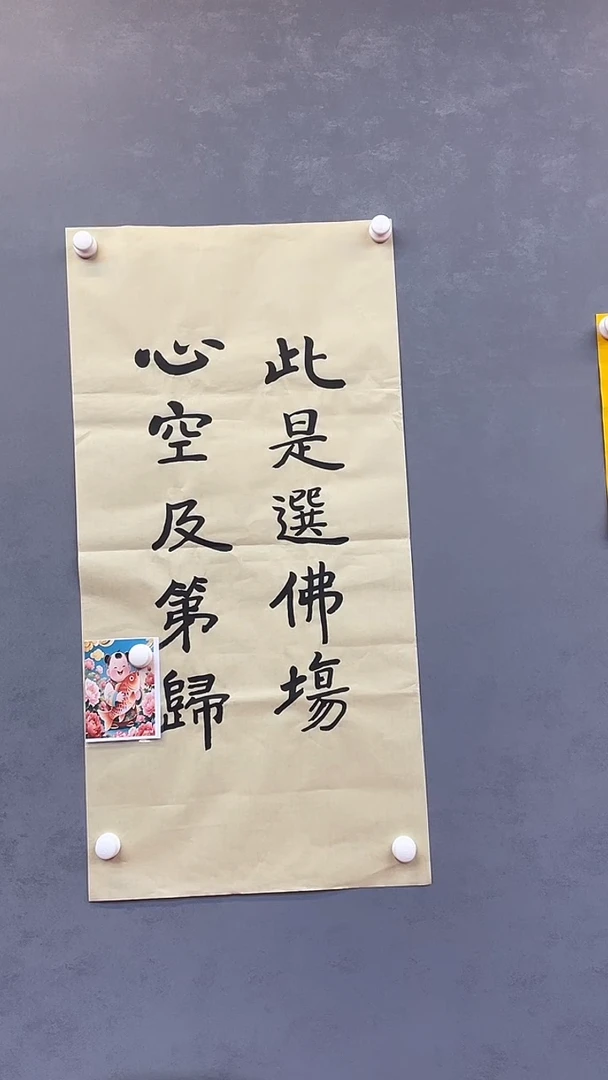 此是選佛塲
心空及第歸